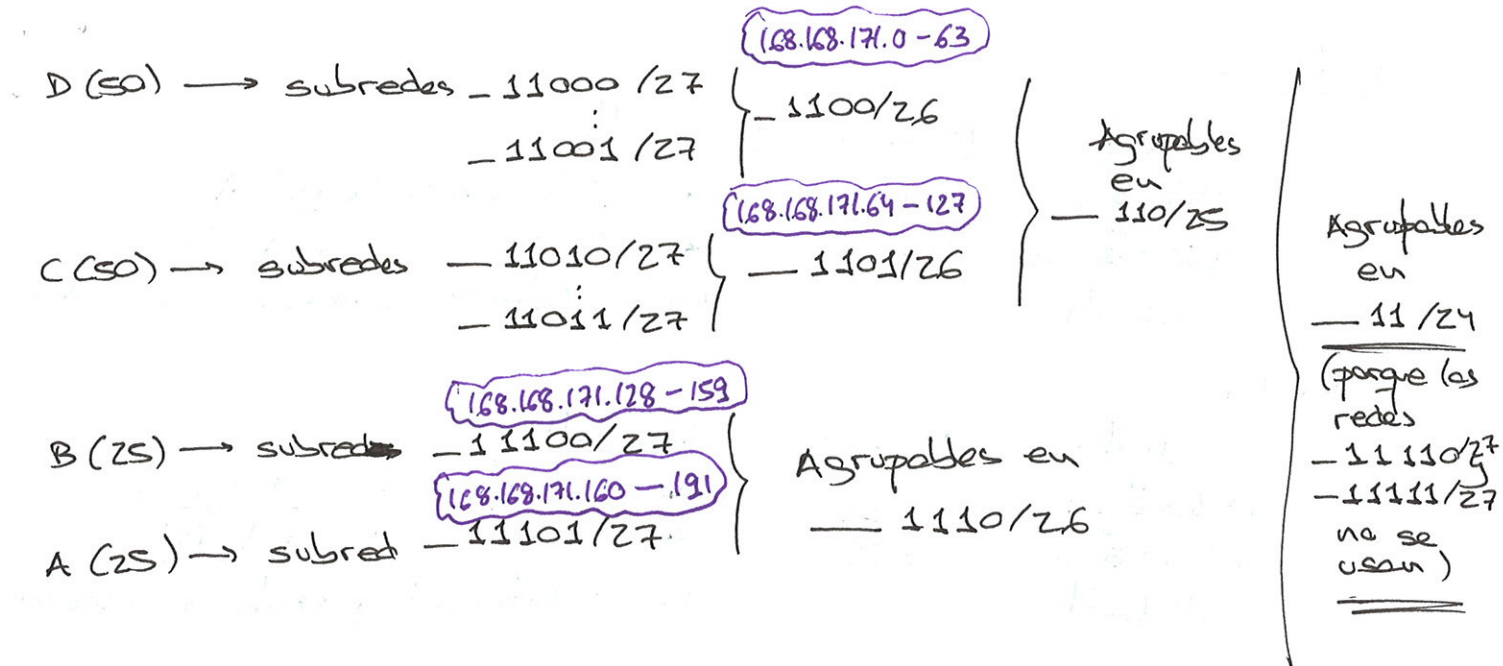 168.168.171.0-63
D (50) → subredes _ 11000 /27
⋮
_ 11001 /27
_ 1100/26
168.168.171.64-127
C (50) → subredes _ 11010/27
⋮
_ 11011 /27
_ 1101/26
Agrupables
en
_ 110/25
168.168.171.128-159
B (25) → subred _ 11100/27
168.168.171.160-191
A (25) → subred _ 11101/27
Agrupables en
_ 1110/26
Agrupables
en
_ 11 /24
(porque las
redes
_ 11110/27
y
_ 11111/27
no se
usan)